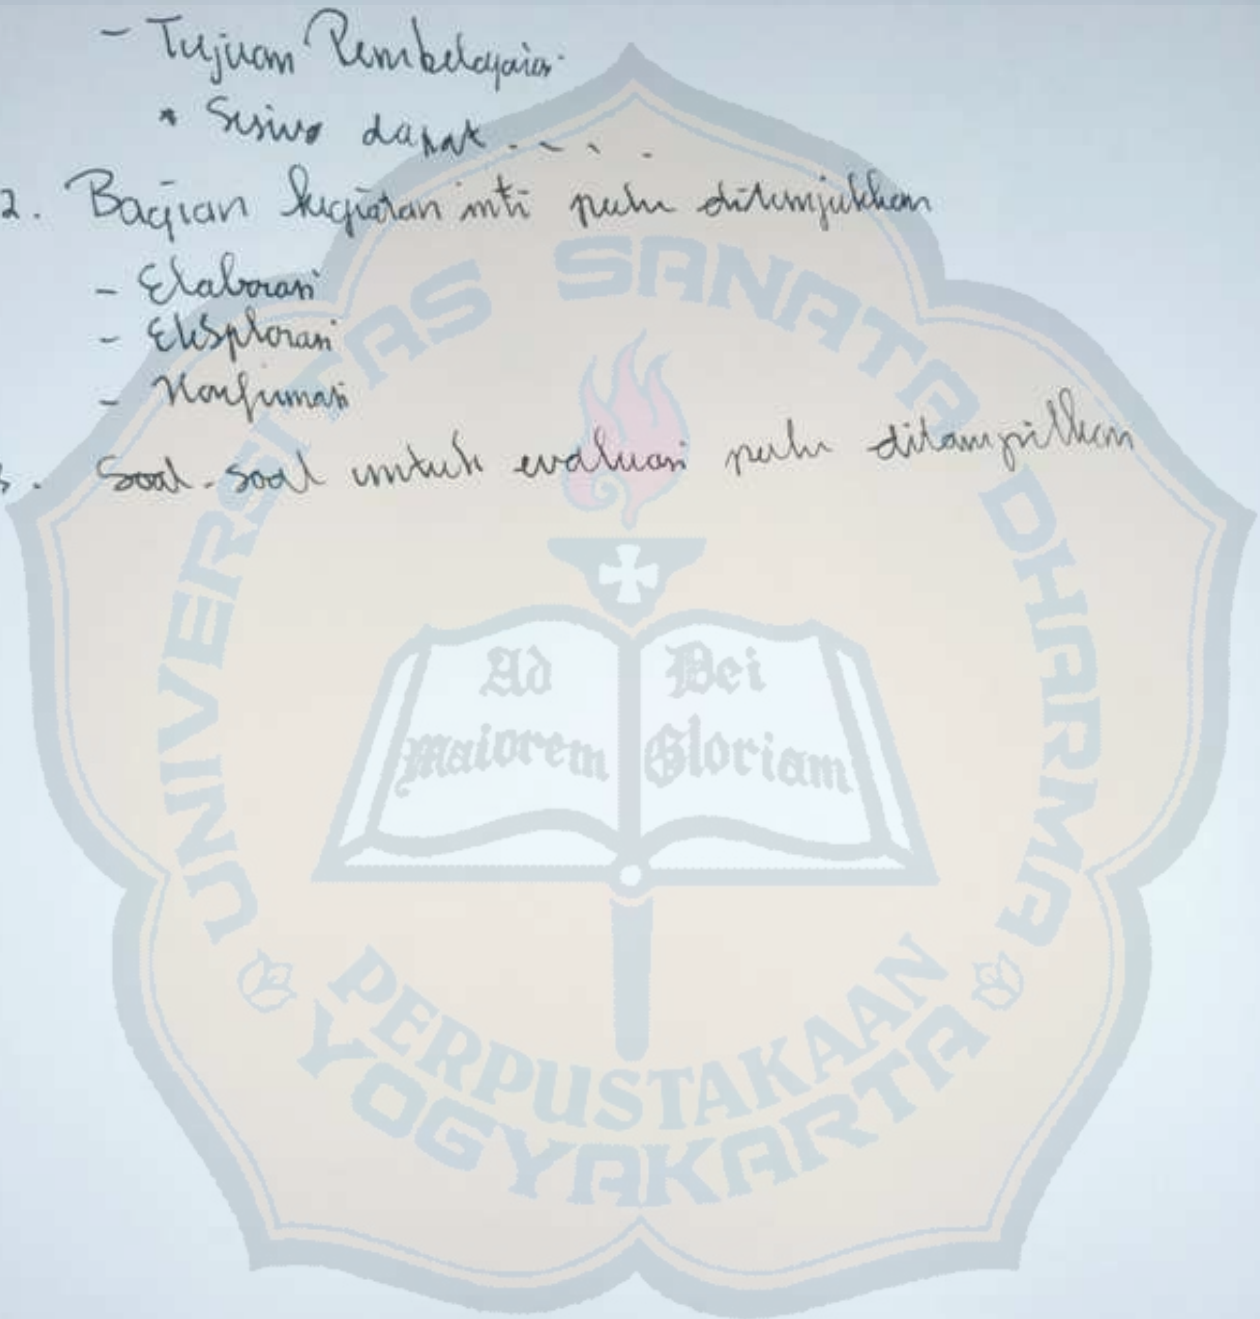 - Tujuan Pembelajaran
* Siswa dapat . . . .
2. Bagian kegiatan inti perlu ditunjukkan
- Elaborasi
- Eksplorasi
- Konfirmasi
3. Soal-soal untuk evaluasi perlu ditampilkan
UNIVERSITAS SANATA DHARMA
Ad Dei
maiorem Gloriam
PERPUSTAKAAN
YOGYAKARTA